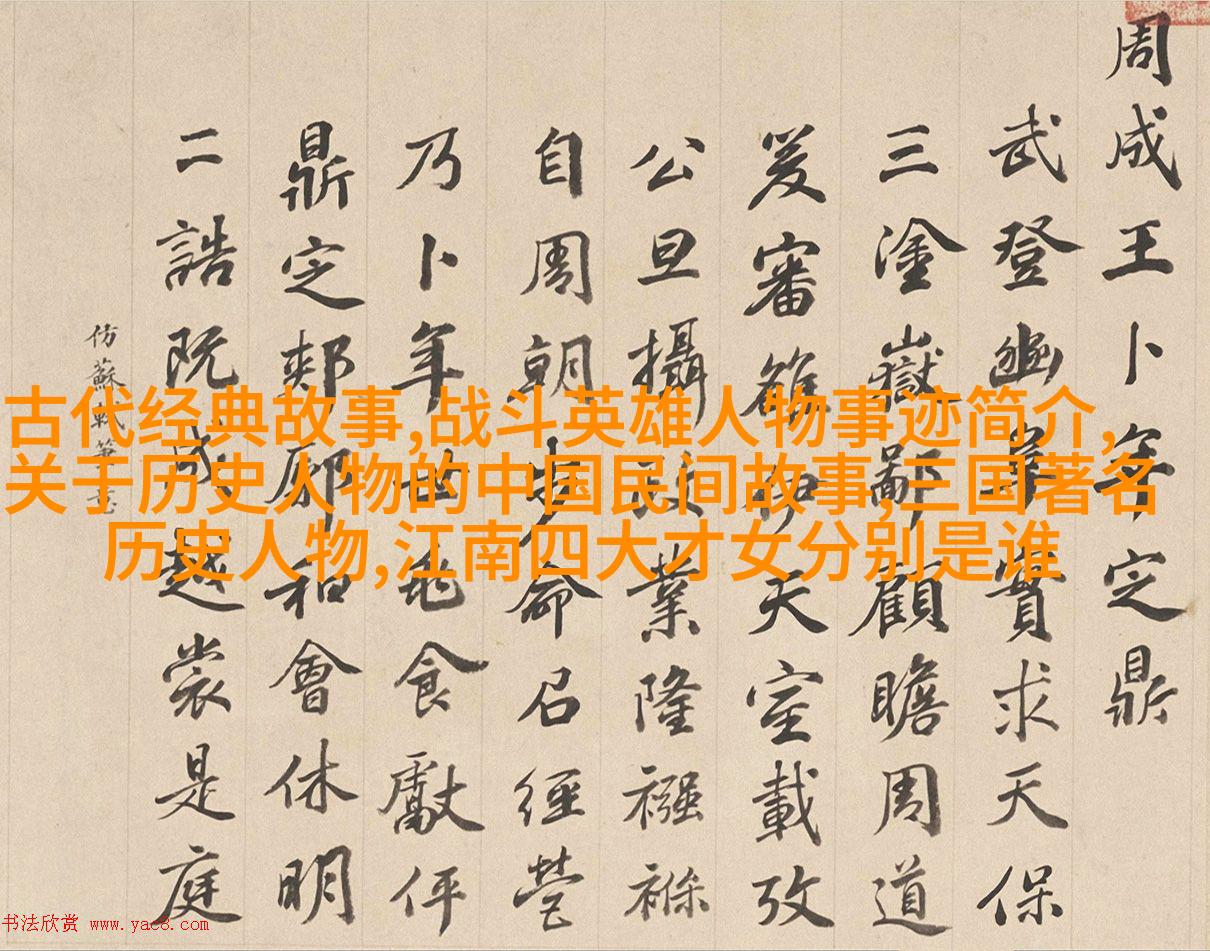 周成王卜年定鼎
武登豳阜實求天保
三塗嶽鄙顧瞻周道
爰審雒汭天室載攷
公旦攝業隆襁褓
自周朝步命召經營
乃卜年世食獻伻
鼎定郟鄏和會休明
二誥既成越裳是庭
仿蘇軾筆意
古代经典故事,战斗英雄人物事迹简介,
关于历史人物的中国民间故事,三国著名
历史人物,江南四大才女分别是谁
书法欣赏 www.yac8.com